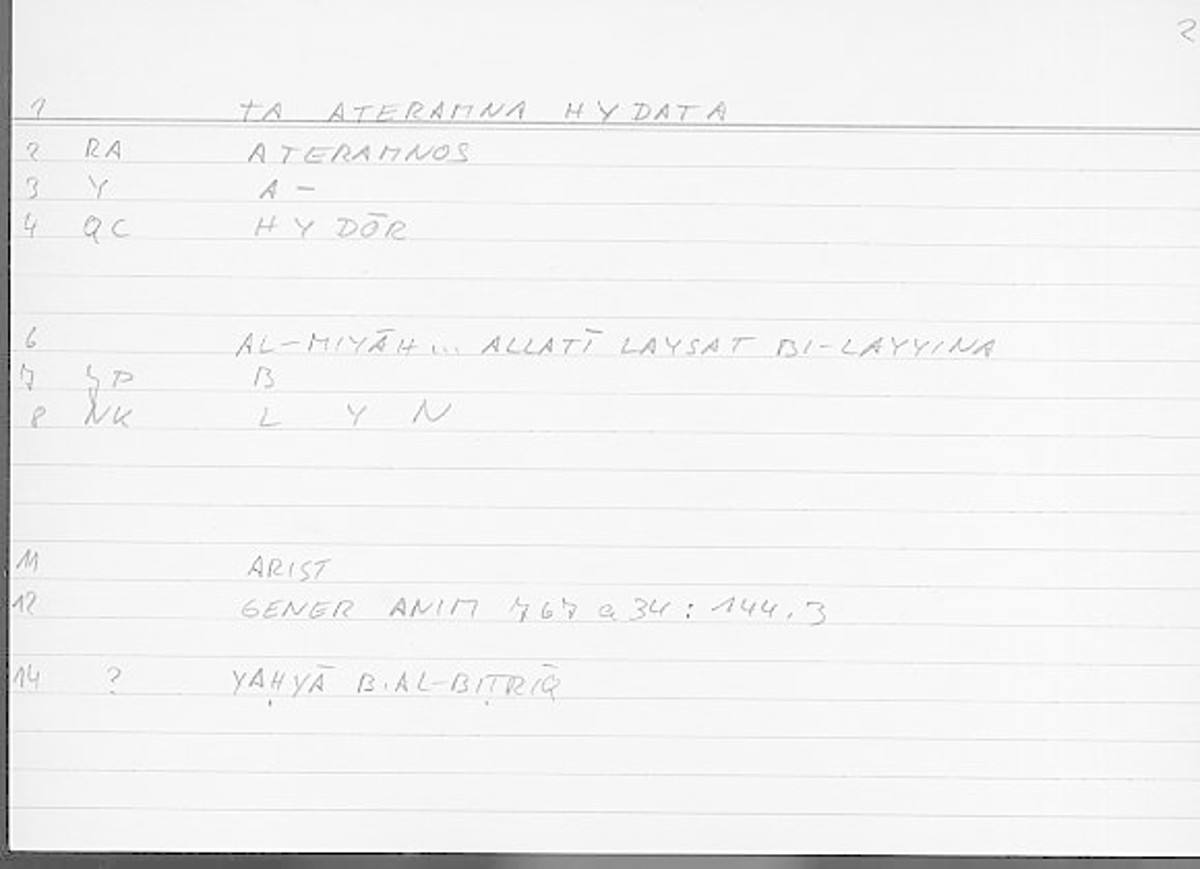 2
1 TA ATERAMNA HYDATA
2 RA ATERAMNOS
3 Y A –
4 QC HYDŌR
6 AL-MIYĀH... ALLATĪ LAYSAT BI-LAYYINA
7 B
8 NK L Y N
11 ARIST
12 GENER ANIM 767 a 34 : 144.3
14 ? YAḤYĀ B. AL-BIṬRĪQ